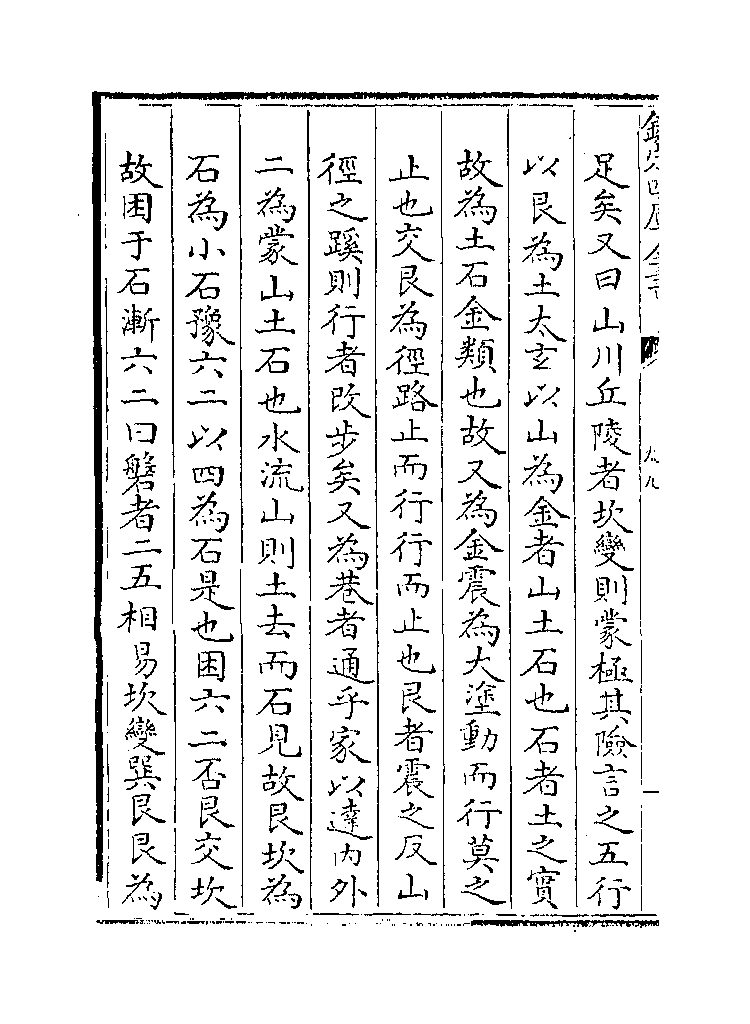 足矣又曰山川丘陵者坎變則蒙極其險言之五行
以艮為土太玄以山為金者山土石也石者土之實
故為土石金類也故又為金震為大塗動而行莫之
止也交艮為徑路止而行行而止也艮者震之反山
徑之蹊則行者改步矣又為巷者通乎家以達内外
二為蒙山土石也水流山則土去而石見故艮坎為
石為小石豫六二以四為石是也困六二否艮交坎
故困于石漸六二曰磐者二五相易坎變巽艮艮為